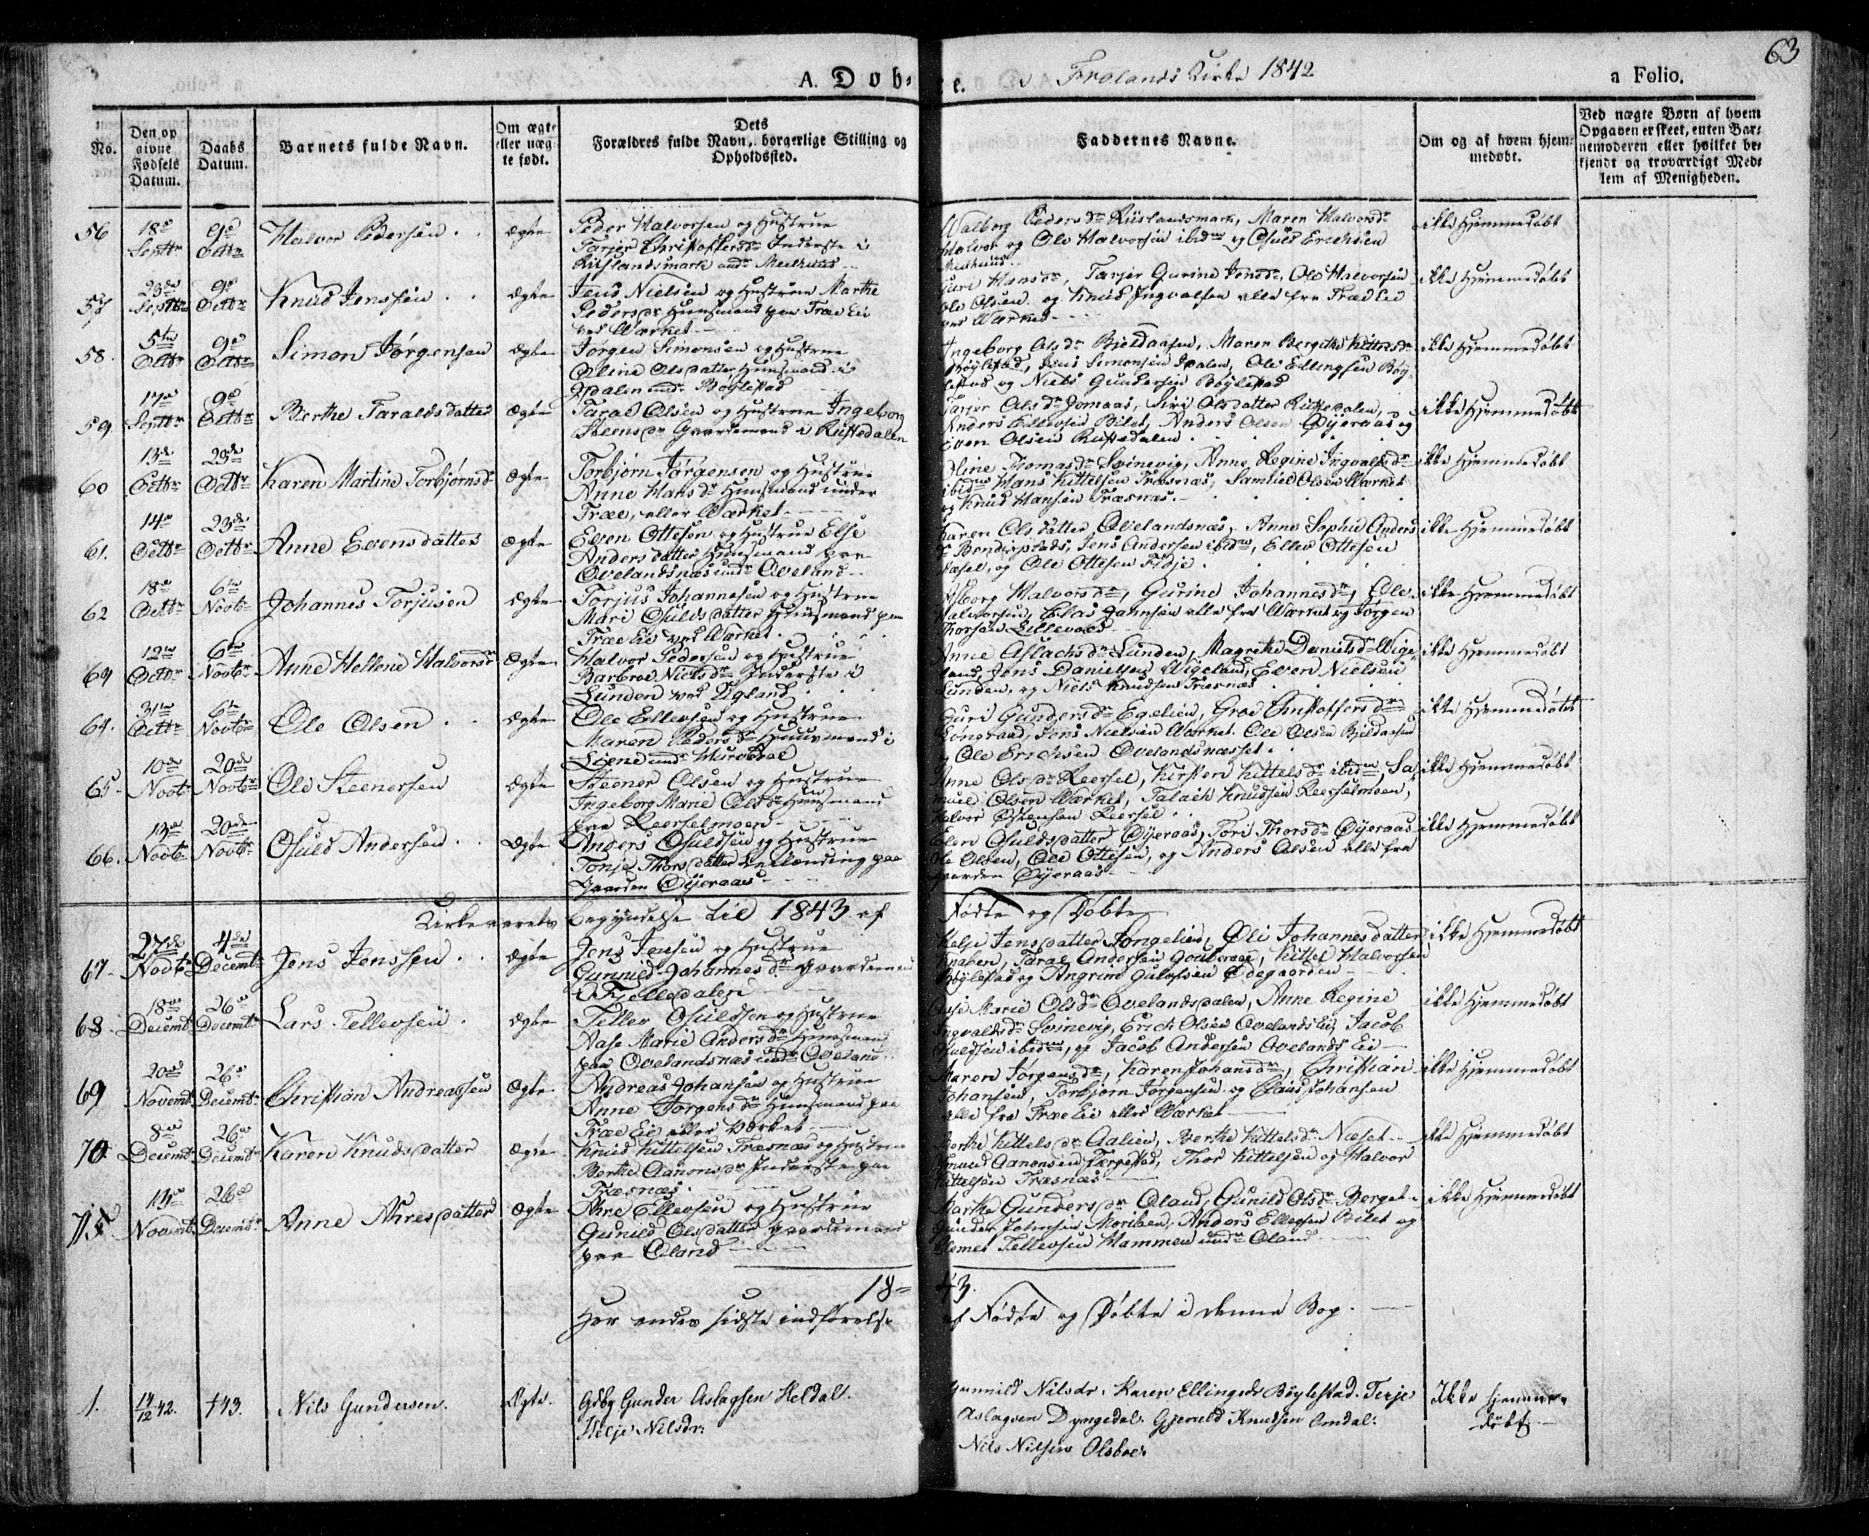 63
A. Døb- e. Frolands Kirke 1842 a Folio.
No.
Den opgivne Fødsels Datum.
Daabs Datum.
Barnets fulde Navn.
Om ægte eller uægte født.
Dets Forældres fulde Navn, borgerlige Stilling og Opholdsted.
Faddernes Navne.
Om og af hvem hjemmedøbt.
Ved uægte Børn af hvem Opgaven er skeet, enten Barnemoderen eller hvilket bekjendt og troværdigt Medlem af Menigheden.
56 18de Septbr 9de Octbr Halvor Pedersen ægte
Peder Halvorsen og Hustrue
Torjer Christoffersdr Inderste i
Riislandsmark undr Meelhuus
Valborg Pedersdr Riislandsmark, Maren Halvorsdr
og Ole Halvorsen ibidm og Osuld Erichsen
Meelhuus
ikke Hjemmedøbt
57 Septbr 9de Octbr Knud Jenssen ægte
Jens Nielsen og Hustrue Marthe
Pedersdr Huusmand paa Træe Eie
ved Værket
Guri Hansdr, Tarjer Gurine Jensdr, Ole Halvorsen
Ole Olsen og Knud Ingvalsen alle fra Træe Eie
ved Værket
ikke Hjemmedøbt
58 5te Octbr 9de Octbr Simon Jørgensen ægte
Jørgen Simonsen og Hustrue
Oline Olsdatter Huusmand i
Dalen undr Bøylestad
Ingeborg Olsdr Bjeldaasen, Maren Bergithe Kittelsdr
Bøylestad, Jens Simonsen Dalen, Ole Ellingsen Bøy-
lestad og Niels Gundersen Bøylestad
ikke Hjemmedøbt
59 17de Septbr 9de Octbr Berthe Taraldsdatter ægte
Tarald Olsen og Hustrue Ingeborg
Steensdr Gaardemand i Rustedalen
Olsdr Jomaas, Siri Olsdatter Rustedalen,
Anders Ellevsen Bilet, Anders Olsen Øyeraas og
Even Olsen Rustedalen
ikke Hjemmedøbt
60 13de Octbr 23de Octbr Karen Martine Torbjørnsdr ægte
Torbjørn Jørgensen og Hustrue
Anne Hansdr Huusmand under
Træe, eller Værket
Oline Thomasdr Svinevig, Anne Regine Ingvalsdr
ibidm Hans Kittelsen Træsnæs, Samuel Olsen Værket
og Knud Hansen Træsnæs
ikke Hjemmedøbt
61. 14de Octbr 23de Octbr Anne Evensdatter ægte
Even Ottesen og Hustrue Else
Andersdatter Huusmand paa
Ovelandsnæs undr Oveland
Karen Olsdatter Ovelandsnæs, Anne Sophie Anders
dr, Jens Andersen ibidm, Ellev Ottesen
og Ole Ottesen Fidje
ikke Hjemmedøbt
62 18de Octbr 6te Novbr Johannes Torjusen ægte
Torjus Johannesen og Hustrue
Mari Osuldsdatter Huusmand paa
Træe Eie ved Værket
Halvorsdr, Gurine Johannesdr, Ole
Halvorsen, Johnsen alle fra Værket og Jørgen
Thorsen Lillevold
ikke Hjemmedøbt
63 12te Octbr 6te Novbr Anne Hellene Halvorsdr ægte
Halvor Pedersen og Hustrue
Barbroe Nielsdr Inderste i
Lunden ved Ugland
Anne Aslachsdr Lunden, Magrethe Danielsdr Wige-
land, Jens Danielsen Wigeland, Even Nielsen
Lunden, og Niels Knudsen Træsnæs
ikke Hjemmedøbt
64. 31te Octbr 6te Novbr Ole Olsen ægte
Ole Ellevsen og Hustrue
Maren Pedersdr Huusmand i
undr Mur
Guri Gundersdr Egelien, Groe Christoffersdr
Jens Nielsen Værket, Ole Olsen Bjeldaasen
og Ole Erichsen Ovelandsnæsset
ikke Hjemmedøbt
65 10de Novbr 20de Novbr Ole Steenersen ægte
Steener Olsen og Hustrue
Ingeborg Marie Olsdr Huusmand
paa Reerselmoen
Anne Olsdr Reersel, Kirsten Kittelsdr ibidm, Sa-
muel Olsen Værket, Talach Knudsen Reerselmoen,
Halvor Østensen Reersel
ikke Hjemmedøbt
66. 13de Novbr 20de Novbr Osuld Andersen ægte
Anders Osuldsen og Hustrue
Tonje Thorsdatter Leilænding paa
Gaarden Øyeraas
Osuldsdatter Øyeraas, Tori Thorsdr Øyeraas
Ole Olsen, Ole Ottesen, og Anders Olsen alle fra
Gaarden Øyeraas
ikke Hjemmedøbt
Kirkeaarets Begyndelse til 1843 af Fødte og Døbte
67 27de Novbr 4de Decembr Jens Jenssen ægte
Jens Jensen og Hustrue
Gunnild Johannesdr Gaardemand
i Fjelledalen
Kelje Jensdatter Songelien, Oli Johannesdatter
Knaben, Tarae Andersen, Kittel Halvorsen
Bøylestad og Angrim Gulofsen Ødegaarden
ikke Hjemmedøbt
68 18de Decembr 26de Decembr Lars Tellevsen ægte
Tellev Osuldsen og Hustrue
Aase Marie Andersdr Huusmand
paa Ovelandsnæs undr Oveland
Aase Marie Olsdr Ovelandsdalen, Anne Regine
Ingvaldsdr Svinevig, Erich Olsen Ovelands Eie, Jacob
Osuldsen ibidm, og Jacob Andersen Ovelands Eie
ikke Hjemmedøbt
69 20de Novembr 26de Decembr Christian Andreassen ægte
Andreas Johansen og Hustrue
Anne Jørgensdr Huusmand paa
Træe Eie eller Værket
Maren Jørgensdr, Karen Johansdr, Christian
Johansen, Torbjørn Jørgensen og Claus Johansen
alle fra Træe Eie eller Værket
ikke Hjemmedøbt
70 8de Decembr 26de Decembr Karen Knudsdatter ægte
Knud Kittelsen Træsnæs og Hustrue
Berthe Aanonsdr Inderste paa
Træsnæs
Berthe Kittelsdr Aalien, Berthe Kittelsdr Næset
Knud Aanonsen Færgestad, Thor Kittelsen og Halvor
Kittelsen Træsnæs
ikke Hjemmedøbt
71 13de Novembr 26de Decembr Anne Ahresdatter ægte
Ahre Ellevsen og Hustrue
Gunild Olsdatter Gaardemand
paa Oland
Marthe Gundersdr Oland, Gunild Olsdr Berget
Gunder Johnsen Moriben, Anders Ellevsen Bilet og
Clemet Tellevsen Hammen undr Oland
ikke Hjemmedøbt
18-43.
Her ender sidste indførelse af Fødte og Døbte i denne Bog.
1. 14/12 42. 43. Nils Gundersen. Ægte.
Gdbr Gunder Aslagsen Heldal.
Helje Nilsdr.
Gunnild Nilsdr. Karen Ellingsdr Bøylestad. Terje
Aslagsen Dyngedal. Gjeruld Knudsen Omdal.
Nils Nilsen Olsboe.
Ikke hjemme-
døbt